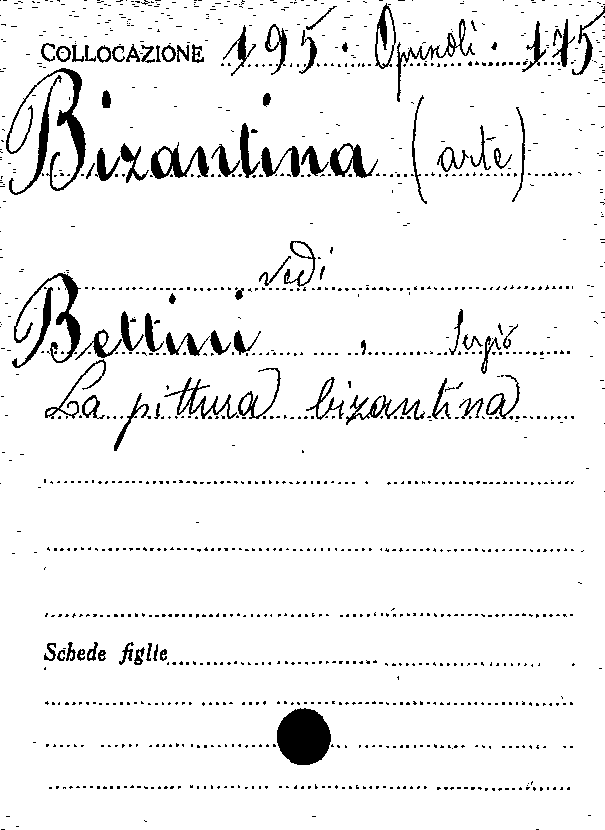 COLLOCAZIONE 195. Opuscoli. 175
Bizantina (arte)
vedi
Bettini, Sergio
La pittura bizantina
Schede figlie